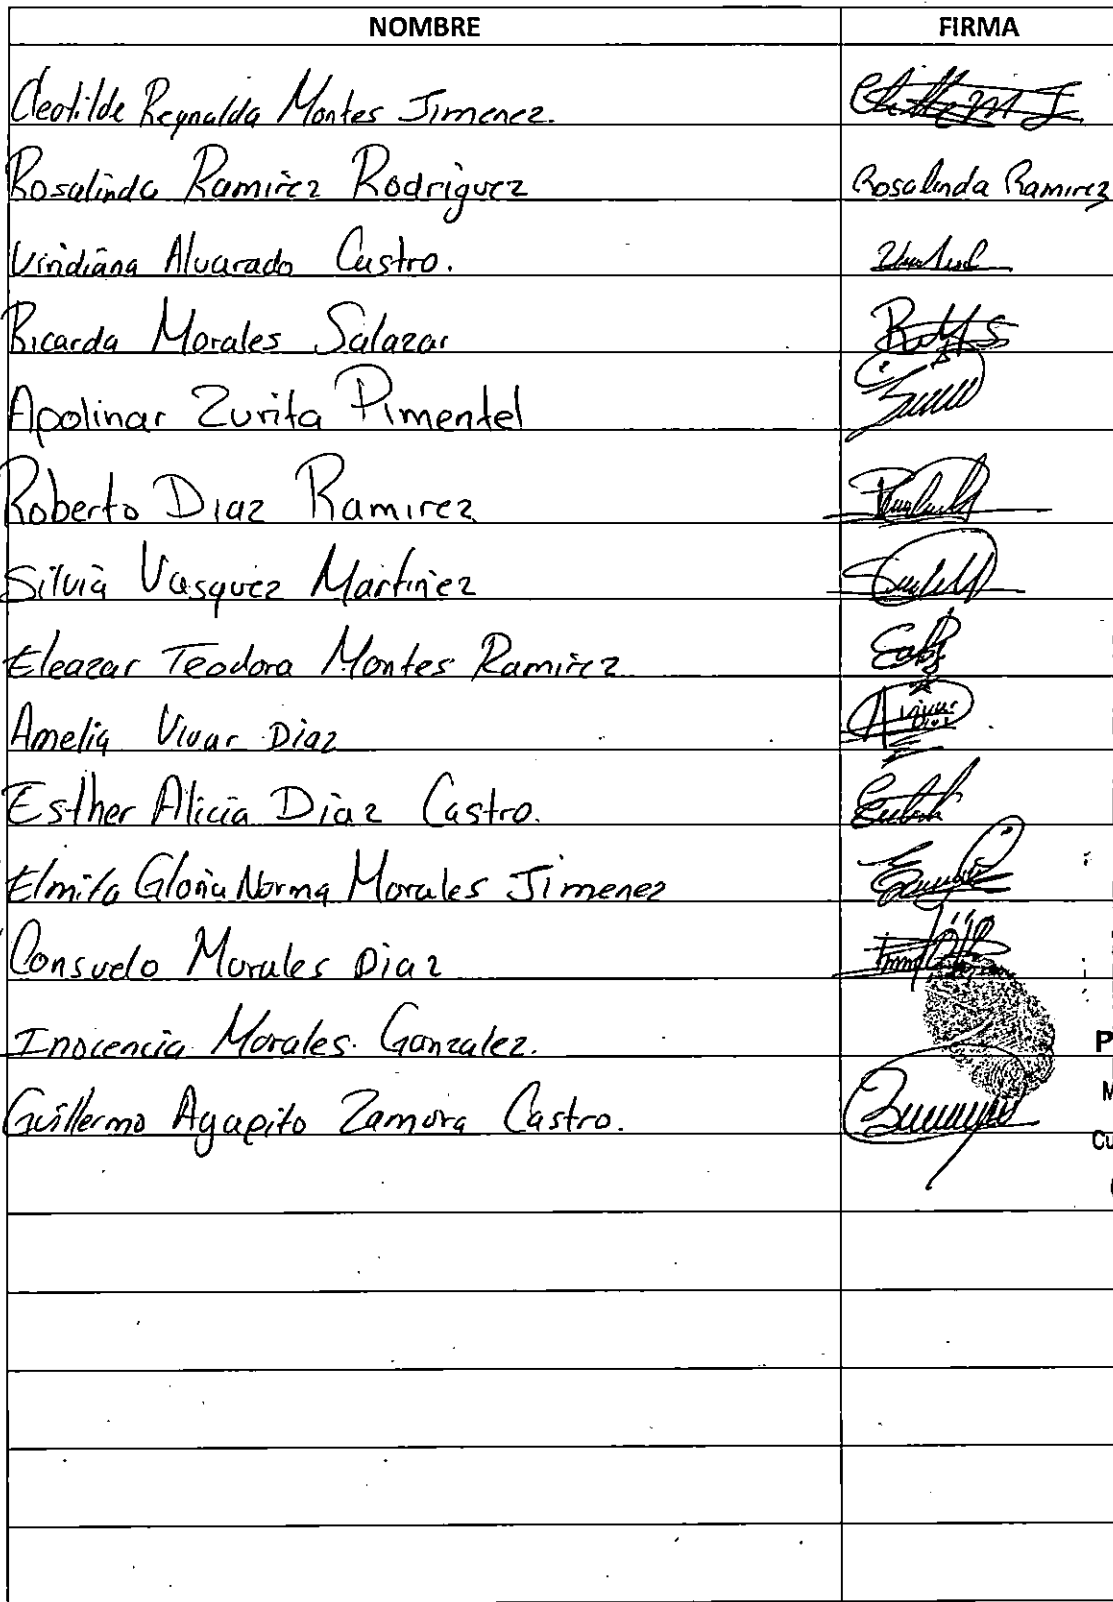 NOMBRE FIRMA
Cleotilde Reynalda Montes Jimenez.
Rosalinda Ramirez Rodriguez Rosalinda Ramirez
Viridiana Alvarado Castro.
Ricarda Morales Salazar
Apolinar Zurita Pimentel
Roberto Diaz Ramirez
Silvia Vasquez Martinez
Eleazar Teodora Montes Ramirez
Amelia Vivar Diaz
Esther Alicia Diaz Castro.
Elmita Gloria Norma Morales Jimenez
Consuelo Morales Diaz
Inocencia Morales Gonzalez.
Guillermo Agapito Zamora Castro.